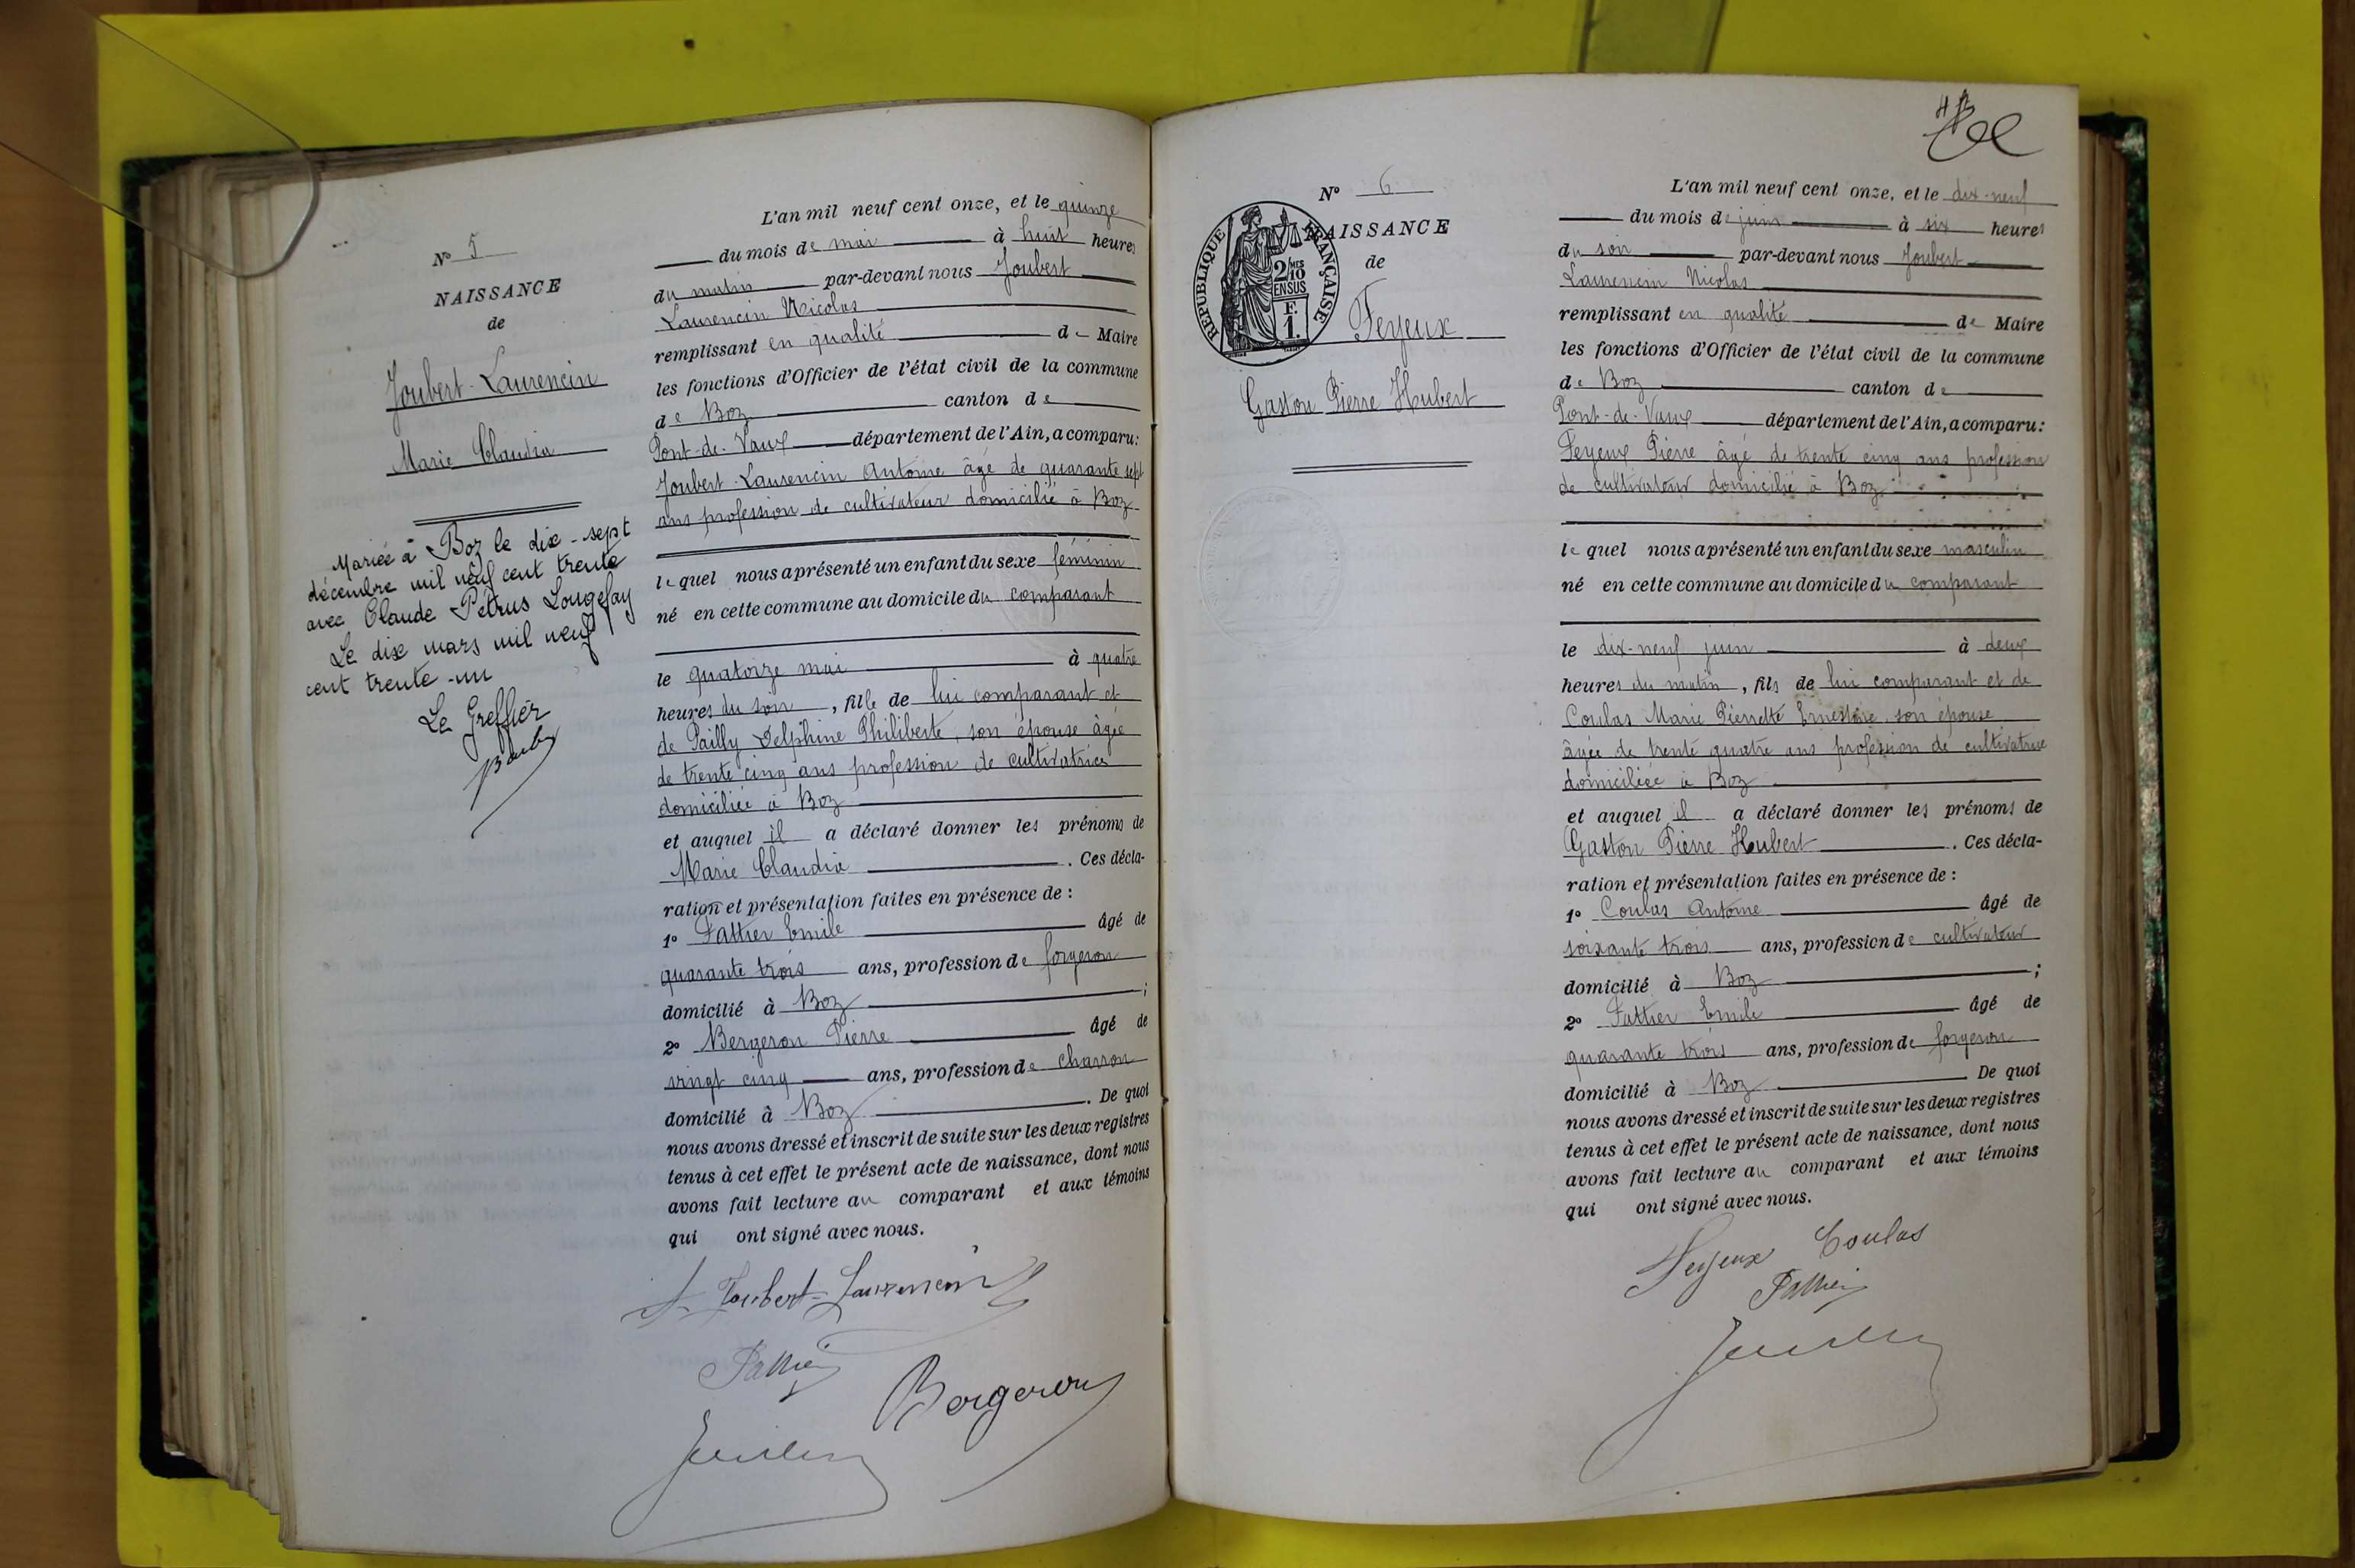 Nº 5
NAISSANCE
de
Joubert-Laurencin
Marie Claudia
Mariée à Boz le dix-sept
décembre mil neuf cent trente
avec Claude Pétrus Longefay
Le dix mars mil neuf
cent trente-un
Le Greffier
L'an mil neuf cent onze, et le quinze
du mois de mai à huit heures
du matin par-devant nous Joubert
Laurencin Nicolas
remplissant en qualité de Maire
les fonctions d'Officier de l'état civil de la commune
de Boz canton de
Pont-de-Vaux département de l'Ain, a comparu:
Joubert-Laurencin Antoine âgé de quarante sept
ans profession de cultivateur domicilié à Boz
lequel nous a présenté un enfant du sexe féminin
né en cette commune au domicile du comparant
le quatorze mai à quatre
heures du soir, fille de lui comparant et
de Pailly Delphine Philiberte, son épouse âgée
de trente cinq ans profession de cultivatrice
domiciliée à Boz
et auquel il a déclaré donner les prénoms de
Marie Claudia. Ces décla-
ration et présentation faites en présence de :
1º Fattier Emile âgé de
quarante trois ans, profession de forgeron
domicilié à Boz ;
2º Bergeron Pierre âgé de
vingt cinq ans, profession de charron
domicilié à Boz. De quoi
nous avons dressé et inscrit de suite sur les deux registres
tenus à cet effet le présent acte de naissance, dont nous
avons fait lecture au comparant et aux témoins
qui ont signé avec nous.
A. Joubert-Laurencin
Fattier
Bergeron
Nº 6
NAISSANCE
de
REPUBLIQUE FRANÇAISE
2/10 MES
EN SUS
F.
1.
Feyeux
Gaston Pierre Hubert
L'an mil neuf cent onze, et le dix-neuf
du mois de juin à six heures
du soir par-devant nous Joubert
Laurencin Nicolas
remplissant en qualité de Maire
les fonctions d'Officier de l'état civil de la commune
de Boz canton de
Pont-de-Vaux département de l'Ain, a comparu:
Feyeux Pierre âgé de trente cinq ans profession
de cultivateur domicilié à Boz
lequel nous a présenté un enfant du sexe masculin
né en cette commune au domicile du comparant
le dix-neuf juin à deux
heures du matin, fils de lui comparant et de
Coulas Marie Pierrette Ernestine son épouse
âgée de trente quatre ans profession de cultivatrice
domiciliée à Boz
et auquel il a déclaré donner les prénoms de
Gaston Pierre Hubert. Ces décla-
ration et présentation faites en présence de :
1º Coulas Antoine âgé de
soixante trois ans, profession de cultivateur
domicilié à Boz ;
2º Fattier Emile âgé de
quarante trois ans, profession de forgeron
domicilié à Boz De quoi
nous avons dressé et inscrit de suite sur les deux registres
tenus à cet effet le présent acte de naissance, dont nous
avons fait lecture au comparant et aux témoins
qui ont signé avec nous.
Feyeux Coulas
Fattier